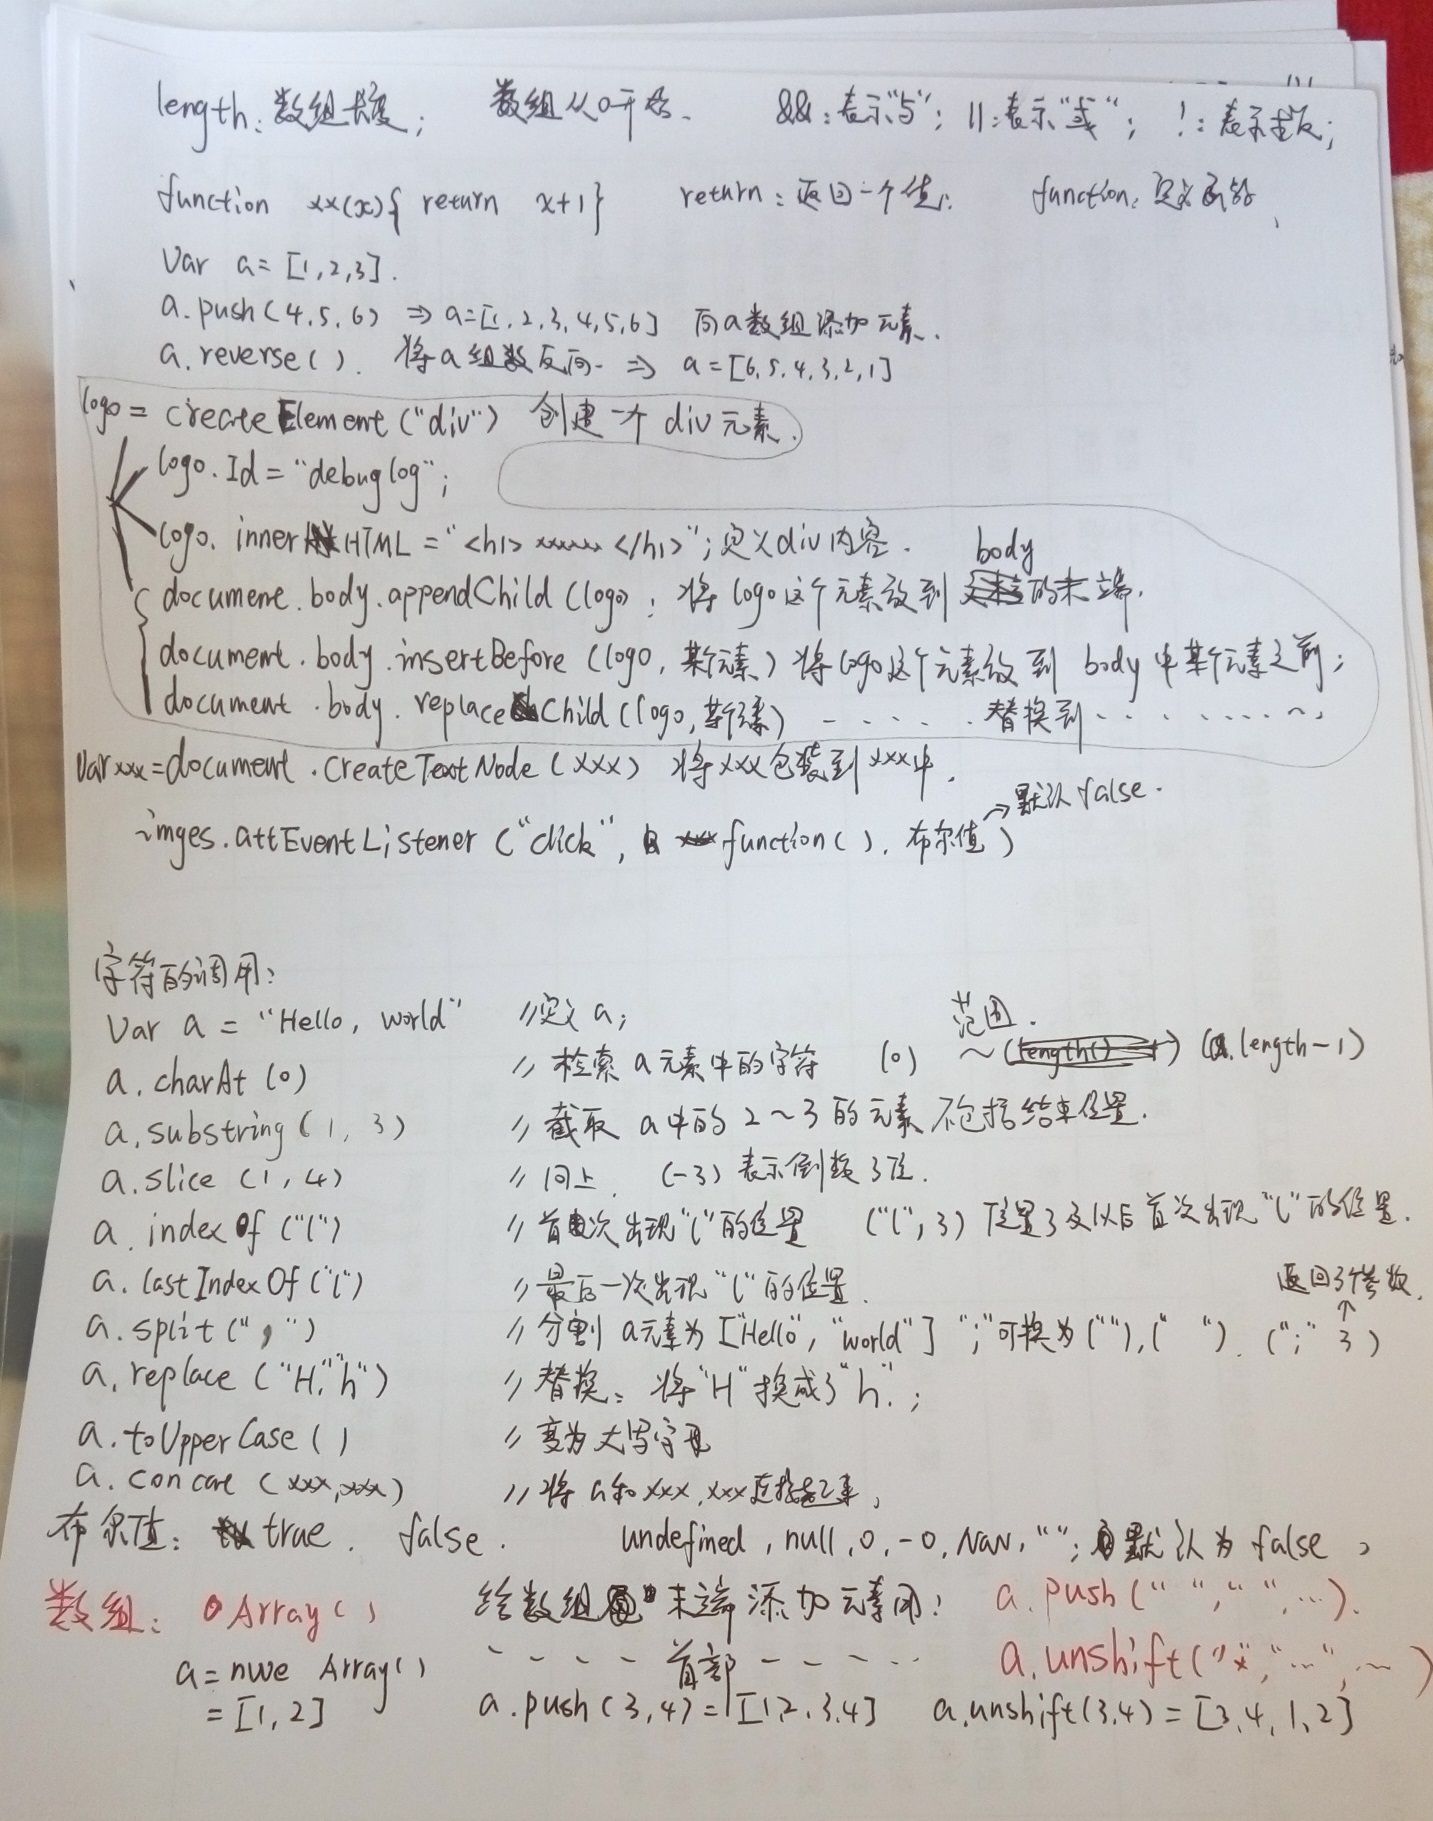 length: 数组长度; 数组从0开始、 &&:表示"与"; ||:表示"或"; !:表示取反;
function xx(x){ return x+1} return:返回一个值; function:定义函数、
Var a=[1,2,3].
a.push(4,5,6) ⇒ a=[1,2,3,4,5,6] 向a数组添加元素.
a.reverse(). 将a组数反向 ⇒ a=[6,5,4,3,2,1]
logo = createElement("div") 创建一个div元素.
logo.Id="debuglog";
logo.innerHTML="<h1>xxxxxx</h1>";定义div内容.
body
document.body.appendChild(logo); 将logo这个元素放到的末端.
document.body.insertBefore(logo, 某个元素) 将logo这个元素放到 body中某个元素之前;
document.body.replaceChild(logo,某个元素) - - - - - 替换到 - - - - - - - -
Var xxx=document.createTextNode(xxx) 将xxx包装到xxx中.
→默认false.
imges.attEventListener("click", function(), 布尔值)
字符的调用:
Var a = "Hello, world" //定义a; 范围.
a.charAt(0) //检索a元素中的字符 (0) ~ (a.length-1)
a.substring(1,3) //截取a中的2~3的元素不包括结束位置.
a.slice(1,4) //同上. (-3)表示倒数3位.
a.indexOf("l") //首次出现"l"的位置 ("l",3)位置3及以后首次出现"l"的位置.
a.lastIndexOf("l") //最后一次出现"l"的位置.
返回3个参数.
↑
a.split(",") //分割a元素为["Hello","world"] ";"可换为(""),(" "). (";" 3)
a.replace("H","h") //替换: 将"H"换成了"h";
a.toUpperCase() //变为大写字母
a.concat(xxx,xxx) //将a和xxx,xxx连接起来,
布尔值: true. false. undefined,null,0,-0,NaN,""; 默认为false,
数组: Array() 给数组末端添加元素用: a.push(" "," ",…).
a=nwe Array() - - - - 首部 - - - - - a.unshift("x","…",…)
=[1,2] a.push(3,4)=[1,2,3,4] a.unshift(3,4)=[3,4,1,2]